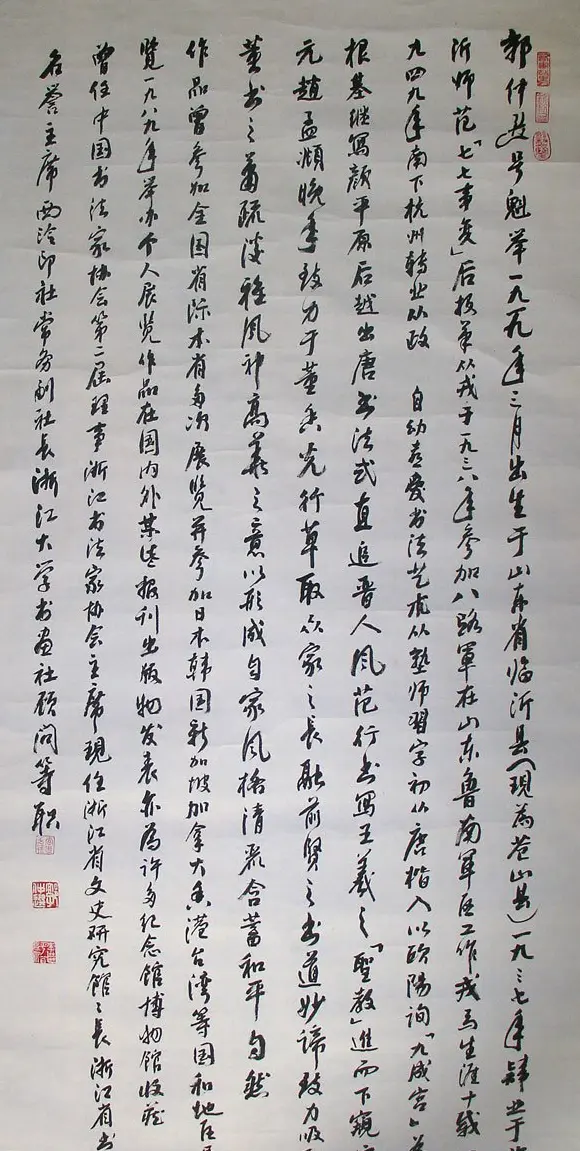 郭仲選号魁举一九一九年三月出生于山东省临沂县(现为苍山县)一九三七年肄业于
沂师范「七七事变」后投笔从戎于一九三八年参加八路军在山东鲁南军区工作戎马生涯十载
九四九年南下杭州转业从政 自幼喜爱书法艺术从塾师习字初从唐楷入以欧阳询「九成宫」为
根基继写颜平原后越出唐书法式直追晋人风范行书写王羲之「聖教」進而下窥
元赵孟頫晚年致力于董香光行草取众家之长融前贤之书道妙谛致力吸
董书之萧疏淡雅风神高义之意以形成自家风格清严含蓄和平自然
作品曾参加全国省际本省多次展览并参加日本韩国新加坡加拿大香港台湾等国和地区
览一九八九年举办个人展览作品在国内外某些报刊出版物发表亦为许多纪念馆博物馆收藏
曾任中国书法家协会第二届理事浙江书法家协会主席現任浙江省文史研究馆馆长浙江省书
名誉主席西泠印社常务副社长浙江大学书画社顾问等职